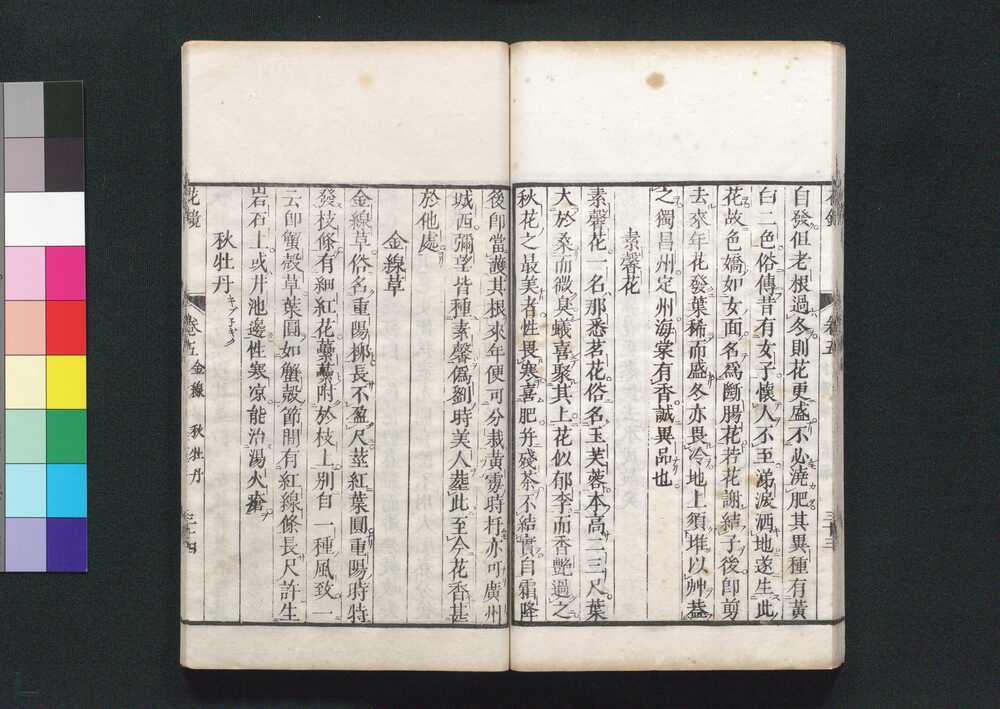 花鏡
卷五
三十三
自發但老根過冬則花更盛不必澆肥其異種有黃
白二色俗傳昔有女子懷人不至涕淚洒地遂生此
花故色嬌如女面名爲斷腸花若花謝結子後卽剪
去來年花發葉稀而盛冬亦畏冷地上須堆以艸葢
之獨昌州定州海棠有香誠異品也
素馨花
素馨花一名那悉茗花俗名玉芙蓉本高二三尺葉
大於桑而微臭蟻喜聚其上花似郁李而香艷過之
秋花之最美者性畏寒喜肥幷殘茶不結實自霜降
後卽當護其根來年便可分栽黃霉時扦亦可廣州
城西彌望皆種素馨僞劉時美人葬此至今花香甚
於他處
金線草
金線草俗名重陽柳長不盈尺莖紅葉圓重陽時特
發枝條有細紅花蘽蘽附於枝上別自一種風致一
云卽蟹殼草葉圓如蟹殼節間有紅線條長尺許生
岩石上或井池邊性寒凉能治湯火瘡
秋牡丹
花鏡
卷五 金線 秋牡丹
三十四